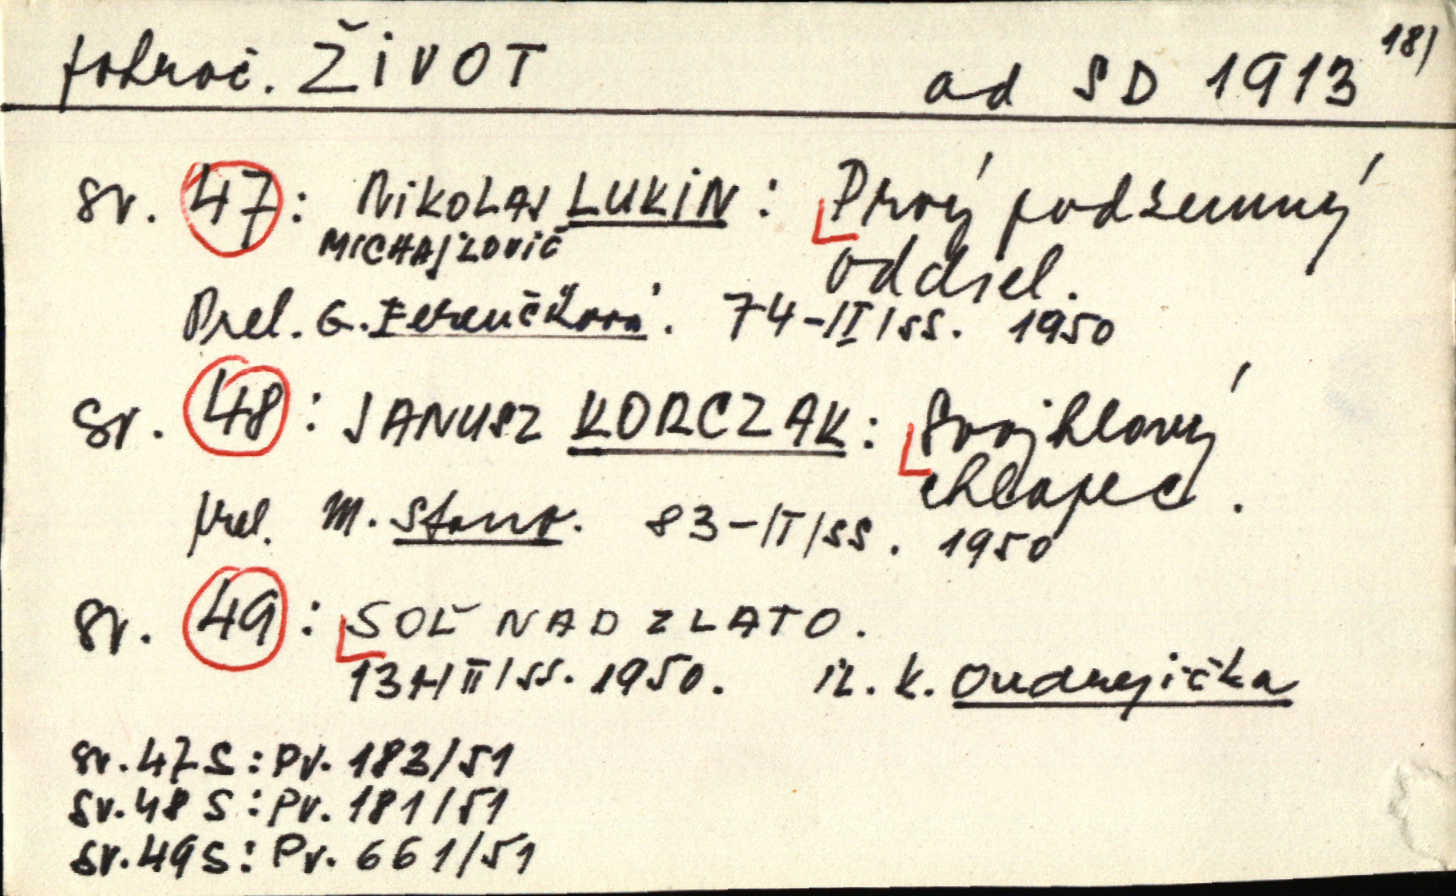 pokrač. ŽIVOT od SD 1913 18)
sv. 47: NIKOLAJ LUKIN: Prvý podzemný
MICHAJLOVIČ oddiel.
Prel. G. Ferenčíková. 74-/II/ss. 1950
sv. 48: JANUSZ KORCZAK: Svojhlavý
chlapec.
prel. M. Stano. 83-/I/ss. 1950
sv. 49: SOĽ NAD ZLATO.
/II/ss. 1950. il. K. Ondrejička
sv. 47 S: Pv. 183/51
sv. 48 S: Pv. 181/51
sv. 49 S: Pv. 661/51